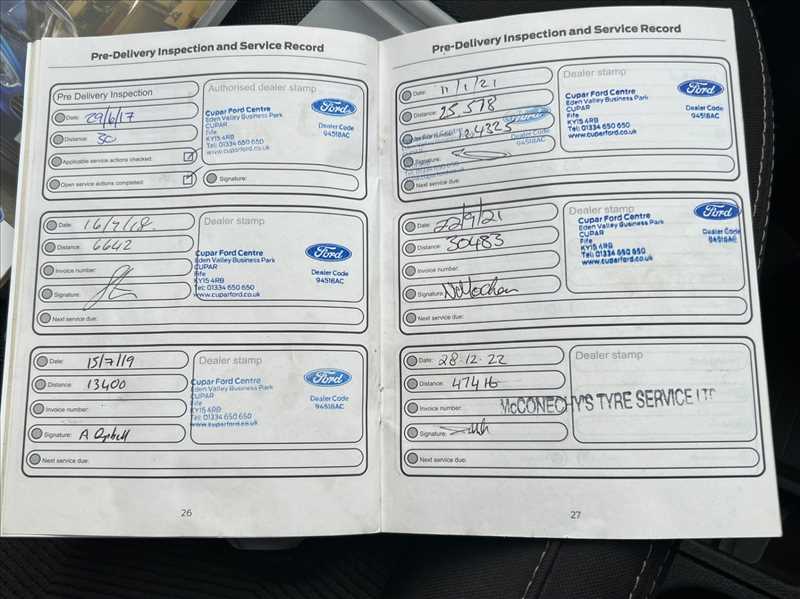 Pre-Delivery Inspection and Service Record
Pre Delivery Inspection
Date: 29/6/17
Distance: 30
Applicable service actions checked:
Open service actions completed:
Authorised dealer stamp
Cupar Ford Centre
Eden Valley Business Park
CUPAR
Fife
KY15 4RB
Tel: 01334 650 650
www.cuparford.co.uk
Ford
Dealer Code
94518AC
Signature:
Date: 16/7/18
Distance: 6642
Invoice number:
Signature:
Next service due:
Dealer stamp
Cupar Ford Centre
Eden Valley Business Park
CUPAR
Fife
KY15 4RB
Tel: 01334 650 650
www.cuparford.co.uk
Ford
Dealer Code
94518AC
Date: 15/7/19
Distance: 13400
Invoice number:
Signature: A
Next service due:
Dealer stamp
Cupar Ford Centre
Eden Valley Business Park
CUPAR
Fife
KY15 4RB
Tel: 01334 650 650
www.cuparford.co.uk
Ford
Dealer Code
94518AC
26
Pre-Delivery Inspection and Service Record
Date: 11/1/21
Distance: 25,518
Signature:
Next service due:
Dealer stamp
Cupar Ford Centre
Eden Valley Business Park
CUPAR
Fife
KY15 4RB
Tel: 01334 650 650
www.cuparford.co.uk
Ford
Dealer Code
94518AC
Date: 22/9/21
Distance: 30483
Invoice number:
Signature:
Next service due:
Dealer stamp
Cupar Ford Centre
Eden Valley Business Park
CUPAR
Fife
KY15 4RB
Tel: 01334 650 650
www.cuparford.co.uk
Ford
Dealer Code
94518AC
Date: 28-12-22
Distance: 47416
Invoice number:
Signature:
Next service due:
Dealer stamp
McCONECHY'S TYRE SERVICE LTD
27